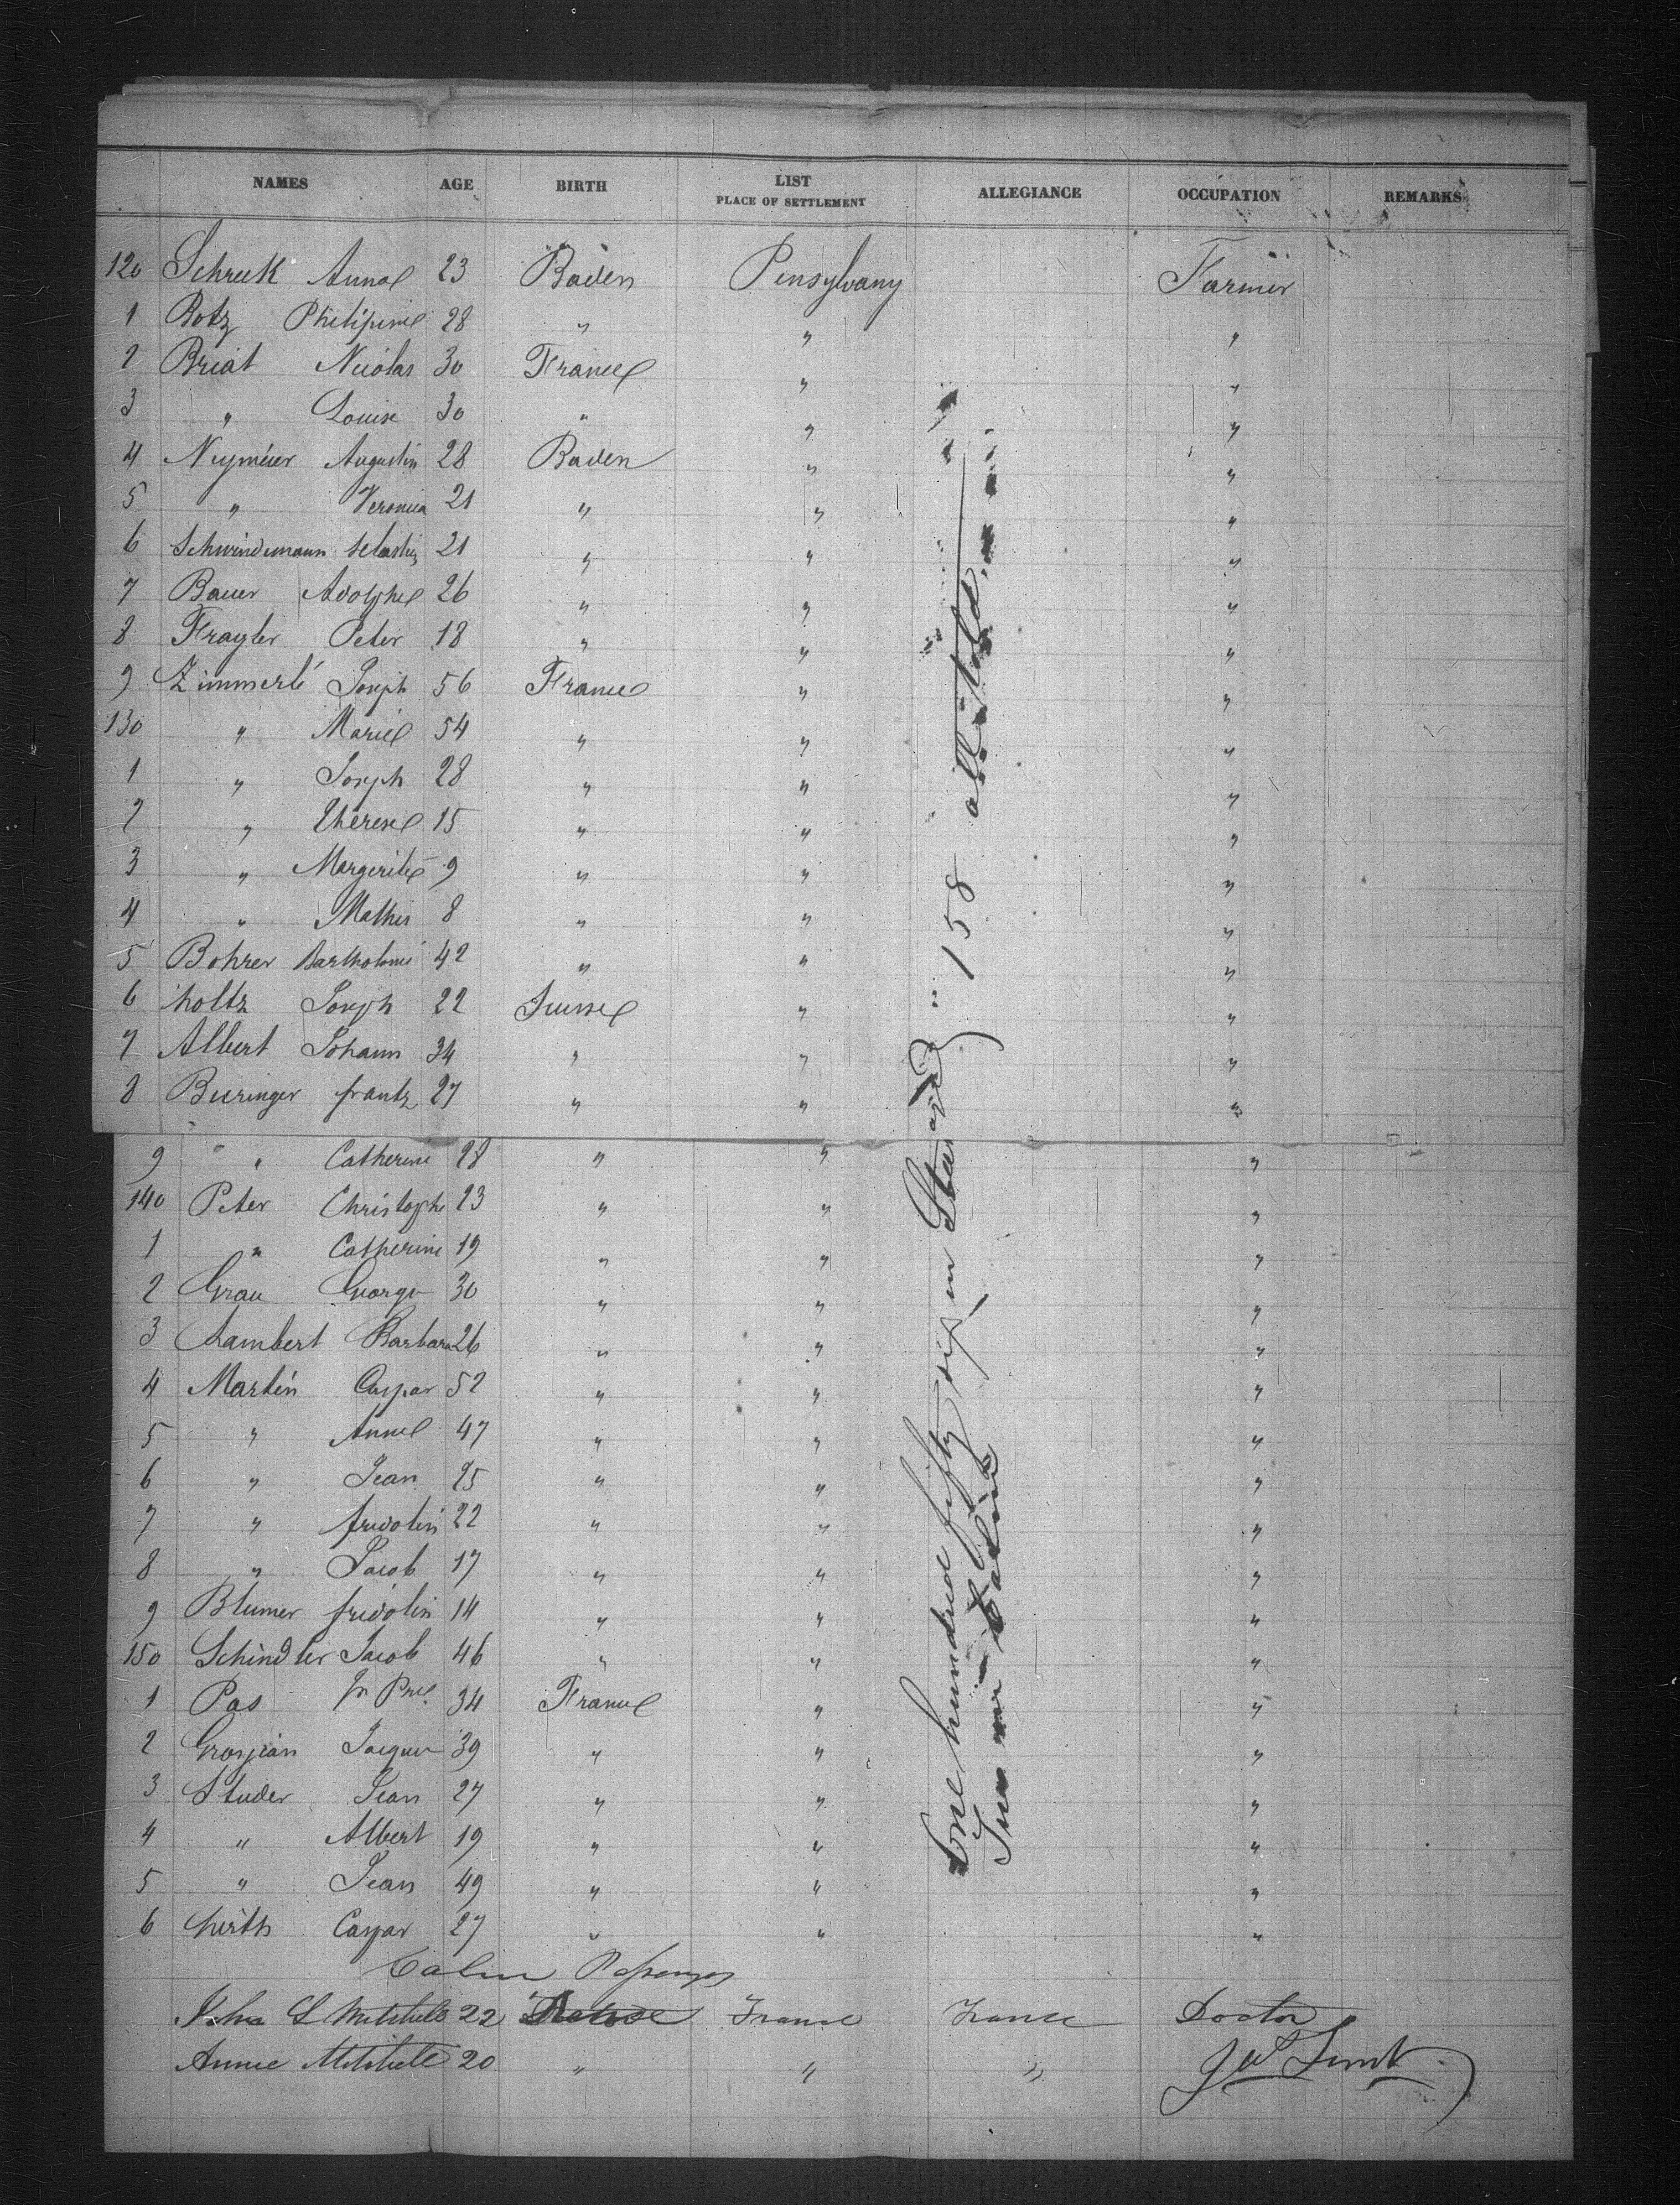 NAMES AGE BIRTH LIST PLACE OF SETTLEMENT ALLEGIANCE OCCUPATION REMARKS
120 Schreck Anna 23 Baden Pensylvany Farmer
1 Botz Philipine 28 " " "
2 Briat Nicolas 30 France " "
3 " Louise 30 " " "
4 Neymeier Augustin 28 Baden " "
5 " Veronica 21 " " "
6 Schwindemann 21 " " "
7 Bauer Adolphe 26 " " "
8 Frayler Peter 18 " " "
9 Zimmerlé Joseph 56 France " "
130 " Marie 54 " " "
1 " Joseph 28 " " "
2 " Therese 15 " " "
3 " Margerite 9 " " "
4 " Mathis 8 " " "
5 Bohrer Bartholomé 42 " " "
6 holtz Joseph 22 Suisse " "
7 Albert Johann 34 " " "
8 Buringer frantz 27 " " "
9 " Catherine 28 " " "
140 Peter Christophe 23 " " "
1 " Catherine 19 " " "
2 Grau George 30 " " "
3 Lambert Barbara 26 " " "
4 Martin Caspar 52 " " "
5 " Anne 47 " " "
6 " Jean 25 " " "
7 " fridolin 22 " " "
8 " Jacob 17 " " "
9 Blumer fridolin 14 " " "
150 Schindler Jacob 46 " " "
1 Pas 34 France " "
2 Grosjean Jacques 39 " " "
3 Studer Jean 27 " " "
4 " Albert 19 " " "
5 " Jean 49 " " "
6 hirth Caspar 27 " " "
Cabin Passenger
John S Mitchele 22 France France Doctor
Annie Mitchele 20 " " "
One hundred fifty six in Steerage
Two in Cabine
158 all told